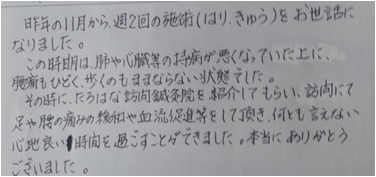 昨年の11月から、週2回の施術(はり、きゅう)をお世話に
なりました。
この時期は、肺や心臓等の持病が悪くなっていた上に、
腰痛もひどく、歩くのもままならない状態でした。
その時に、たちばな訪問鍼灸院を紹介してもらい、訪問にて
足や腰の痛みの緩和や血流促進等をして頂き、何とも言えない
心地良い時間を過ごすことができました。本当にありがとう
ございました。